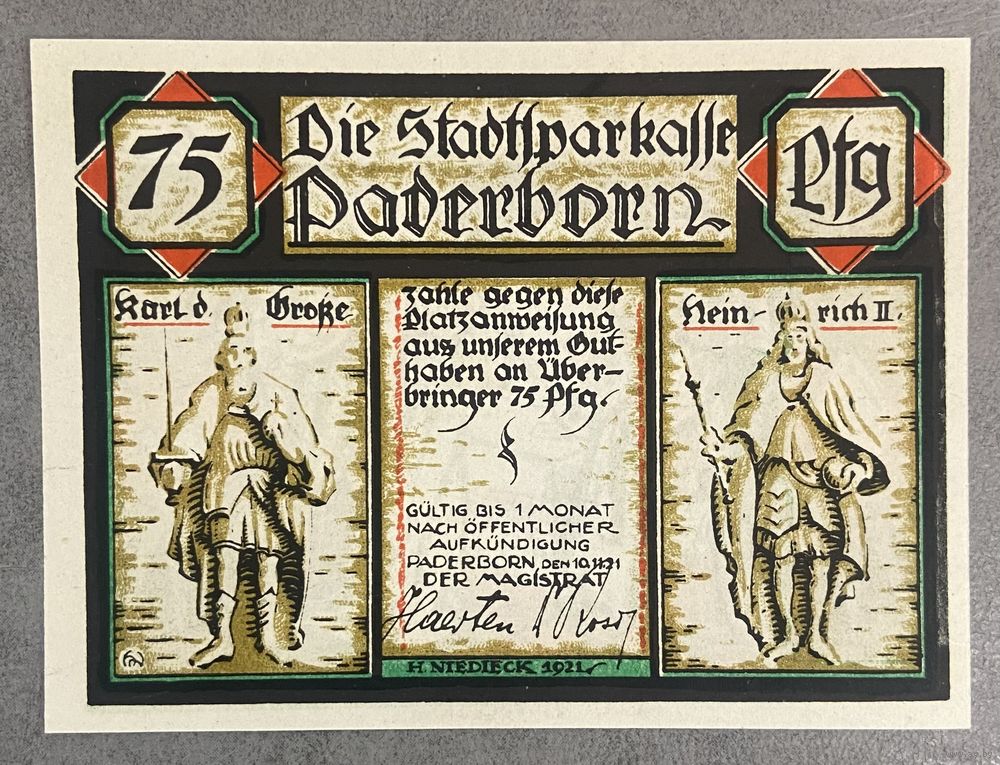 75
Die Stadtsparkasse
Pfg
Paderborn
Karl d. Große
zahle gegen diese
Platzanweisung
aus unserem Gut-
haben an Über-
bringer 75 Pfg.
Hein- rich II.
GÜLTIG BIS 1 MONAT
NACH ÖFFENTLICHER
AUFKÜNDIGUNG
PADERBORN DEN 10.11.21
DER MAGISTRAT
Haerten
H. NIEDIECK 1921